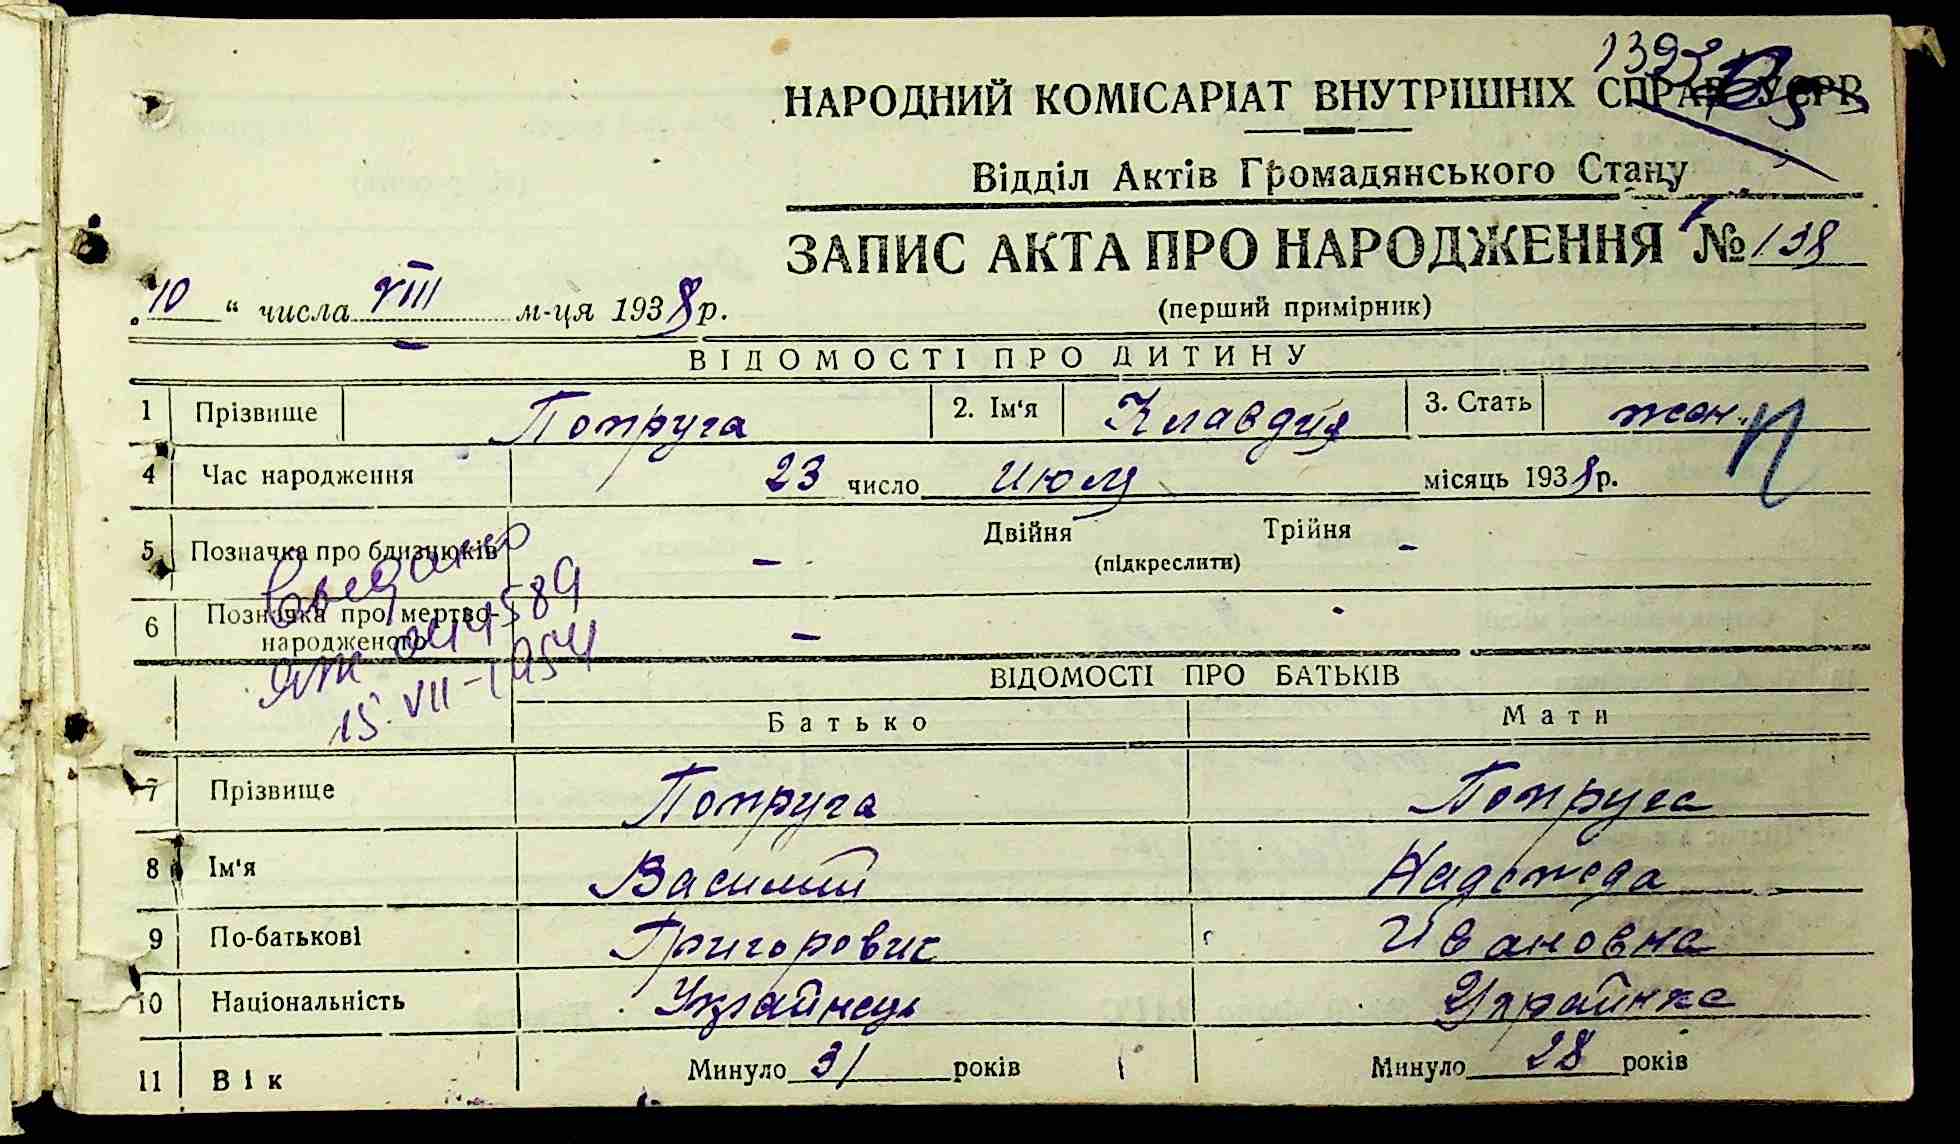 1393
НАРОДНИЙ КОМІСАРІАТ ВНУТРІШНІХ СПРАВ УСРР
Відділ Актів Громадянського Стану
ЗАПИС АКТА ПРО НАРОДЖЕННЯ № 138
„10“ числа VIII м-ця 1938 р.
(перший примірник)
ВІДОМОСТІ ПРО ДИТИНУ
1 Прізвище Попруга 2. Ім'я Клавдия 3. Стать жен.
4 Час народження 23 число Июля місяць 1938 р.
5 Позначка про близнюків - Двійня Трійня -
(підкреслити)
Выдано
6 Позначка про мертво-
народженого -
ЯЖ 014589
15.VII-1954
ВІДОМОСТІ ПРО БАТЬКІВ
Батько Мати
7 Прізвище Попруга Попруга
8 Ім'я Василий Надежда
9 По-батькові Григорович Ивановна
10 Національність Украйнець Украйнка
11 Вік Минуло 31 років Минуло 28 років